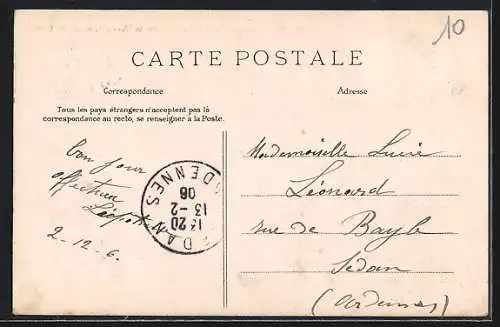 10
CARTE POSTALE
Correspondance
Adresse
Tous les pays étrangers n'acceptent pas là
correspondance au recto, se renseigner à la Poste.
bon jour
Léopol
2-12-6.
SEDAN ARDENNES
13 20
13-2
06
Mademoiselle Lucie
Léonard
rue de Bayle
Sedan
(Ardennes)